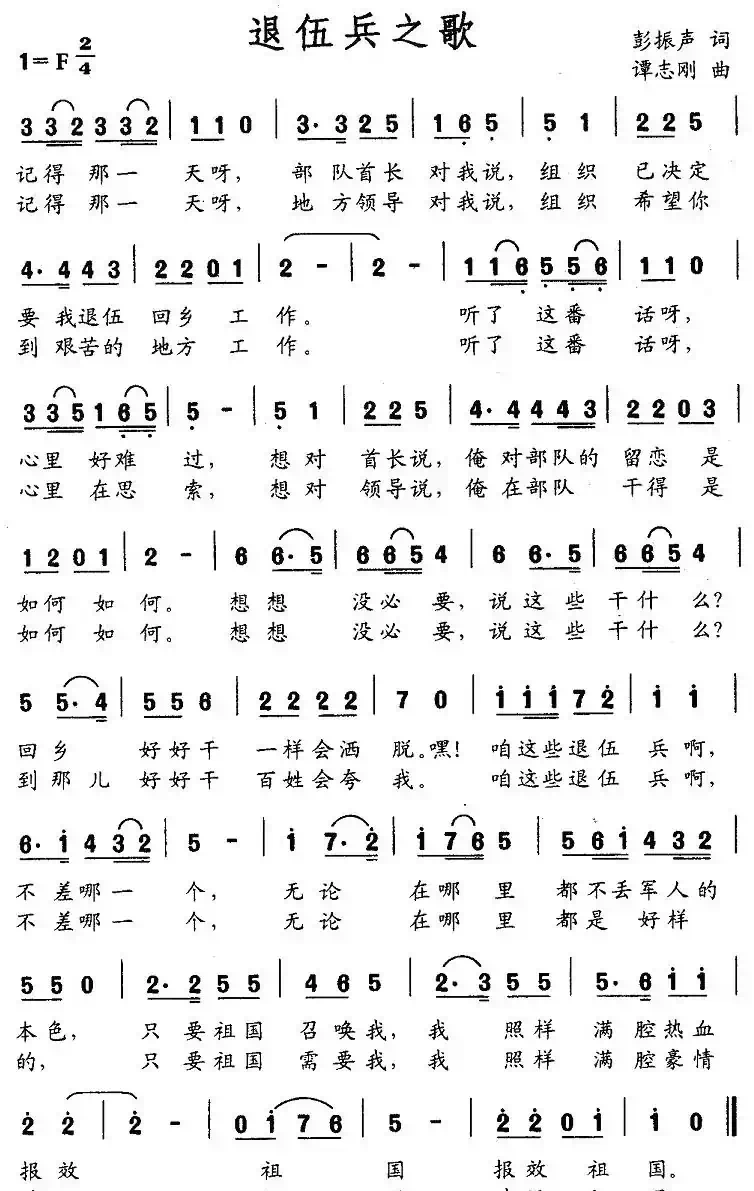 退伍兵之歌
1=F 2/4
彭振声 词
谭志刚 曲
3 3 2 3 3 2 | 1 1 0 | 3· 3 2 5 | 1 6 5 | 5 1 | 2 2 5 |
记得 那一 天呀, 部 队首长 对我说, 组织 已决定
记得 那一 天呀, 地 方领导 对我说, 组织 希望你
4· 4 4 3 | 2 2 0 1 | 2 - | 2 - | 1 1 6 5 5 6 | 1 1 0 |
要 我退伍 回乡 工 作。 听了 这番 话呀,
到 艰苦的 地方 工 作。 听了 这番 话呀,
3 3 5 1 6 5 | 5 - | 5 1 | 2 2 5 | 4· 4 4 4 3 | 2 2 0 3 |
心里 好难 过, 想对 首长说, 俺 对部队的 留恋 是
心里 在思 索, 想对 领导说, 俺 在部队 干得 是
1 2 0 1 | 2 - | 6 6· 5 | 6 6 5 4 | 6 6· 5 | 6 6 5 4 |
如何 如 何。 想 想 没必 要, 说 这 些 干什 么?
如何 如 何。 想 想 没必 要, 说 这 些 干什 么?
5 5· 4 | 5 5 6 | 2 2 2 2 | 7 0 | i i i 7 2 | i i |
回 乡 好好干 一样会洒 脱。嘿! 咱这些退伍 兵啊,
到 那 儿 好好干 百姓会夸 我。 咱这些退伍 兵啊,
6· i 4 3 2 | 5 - | i 7· 2 | i 7 6 5 | 5 6 i 4 3 2 |
不 差哪一 个, 无 论 在哪 里 都不丢军人的
不 差哪一 个, 无 论 在哪 里 都是 好样
5 5 0 | 2· 2 5 5 | 4 6 5 | 2· 3 5 5 | 5· 6 i i |
本色, 只 要祖国 召唤我, 我 照样 满 腔热血
的, 只 要祖国 需要我, 我 照样 满 腔豪情
2 2 | 2 - | 0 i 7 6 | 5 - | 2 2 0 i | i 0 ‖
报 效 祖 国 报效 祖 国。